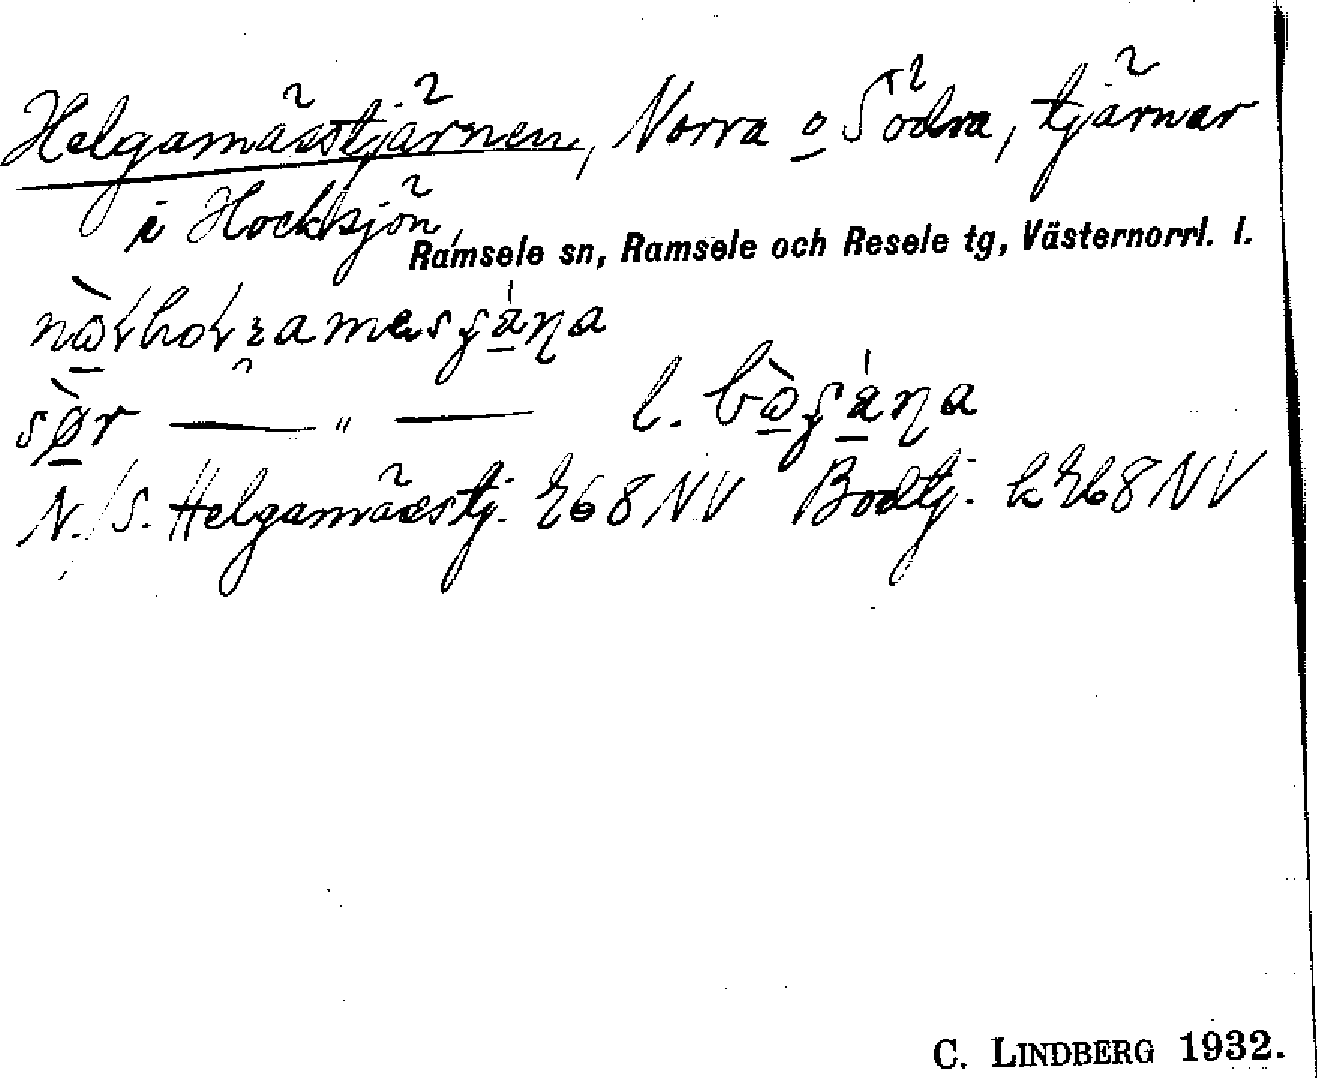 Helgamässtjärnen, Norra o Södra, tjärnar
i Hocksjön,
Ramsele sn, Ramsele och Resele tg, Västernorrl. l.
sø̀r — „ — l.
N./S. Helgamässtj. 268 NV Bodtj. k 268 NV
C. LINDBERG 1932.